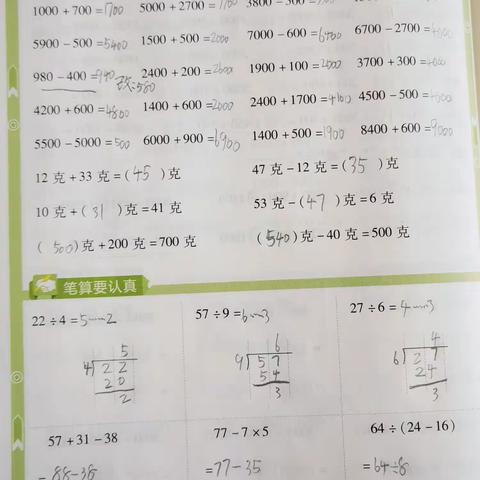 1000 + 700 = 1700 5000 + 2700 = 3800 - 300 =
5900 - 500 = 5400 1500 + 500 = 2000 7000 - 600 = 6400 6700 - 2700 = 4000
980 - 400 = 940 改:580 2400 + 200 = 2600 1900 + 100 = 2000 3700 + 300 = 4000
4200 + 600 = 4800 1400 + 600 = 2000 2400 + 1700 = 4100 4500 - 500 = 4000
5500 - 5000 = 500 6000 + 900 = 6900 1400 + 500 = 1900 8400 + 600 = 9000
12 克 + 33 克 = ( 45 ) 克 47 克 - 12 克 = ( 35 ) 克
10 克 + ( 31 ) 克 = 41 克 53 克 - ( 47 ) 克 = 6 克
( 500 ) 克 + 200 克 = 700 克 ( 540 ) 克 - 40 克 = 500 克
笔算要认真
22 ÷ 4 = 5……2 57 ÷ 9 = 6……3 27 ÷ 6 = 4……3
5 6 4
4 22 9 57 6 27
20 54 24
2 3 3
57 + 31 - 38 77 - 7 × 5 64 ÷ (24 - 16)
= 88 - 38 = 77 - 35 = 64 ÷ 8